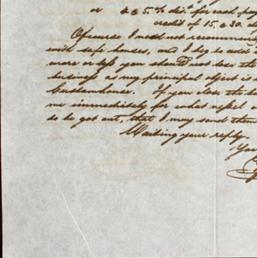 or 5 % dis. for cash, pay
credit of 15, 30 da
Of course I need not recommen
with safe houses, and I beg to add
more or less you should not lose the
business as my principal object is
Customhouse. If you close the b
me immediately for what vessel
to be got out, that I may send them
Waiting your reply.
You